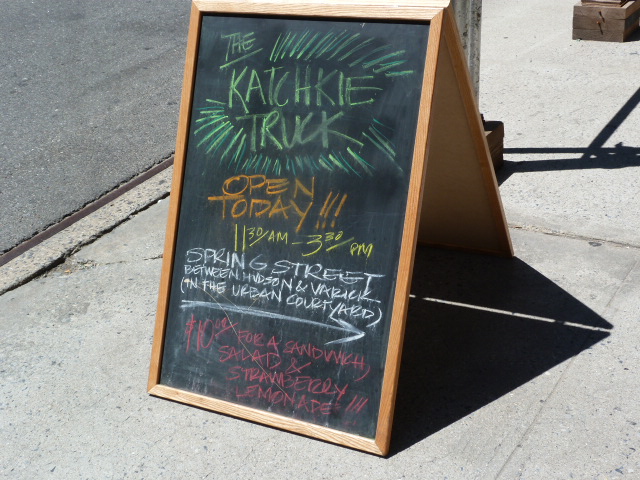 THE
KATCHKIE
TRUCK
OPEN
TODAY!!!
11 30/AM - 3 30/PM
SPRING STREET
BETWEEN HUDSON & VARICK
(IN THE URBAN COURTYARD)
$10.00 FOR A SANDWICH,
SALAD &
STRAWBERRY
LEMONADE!!!